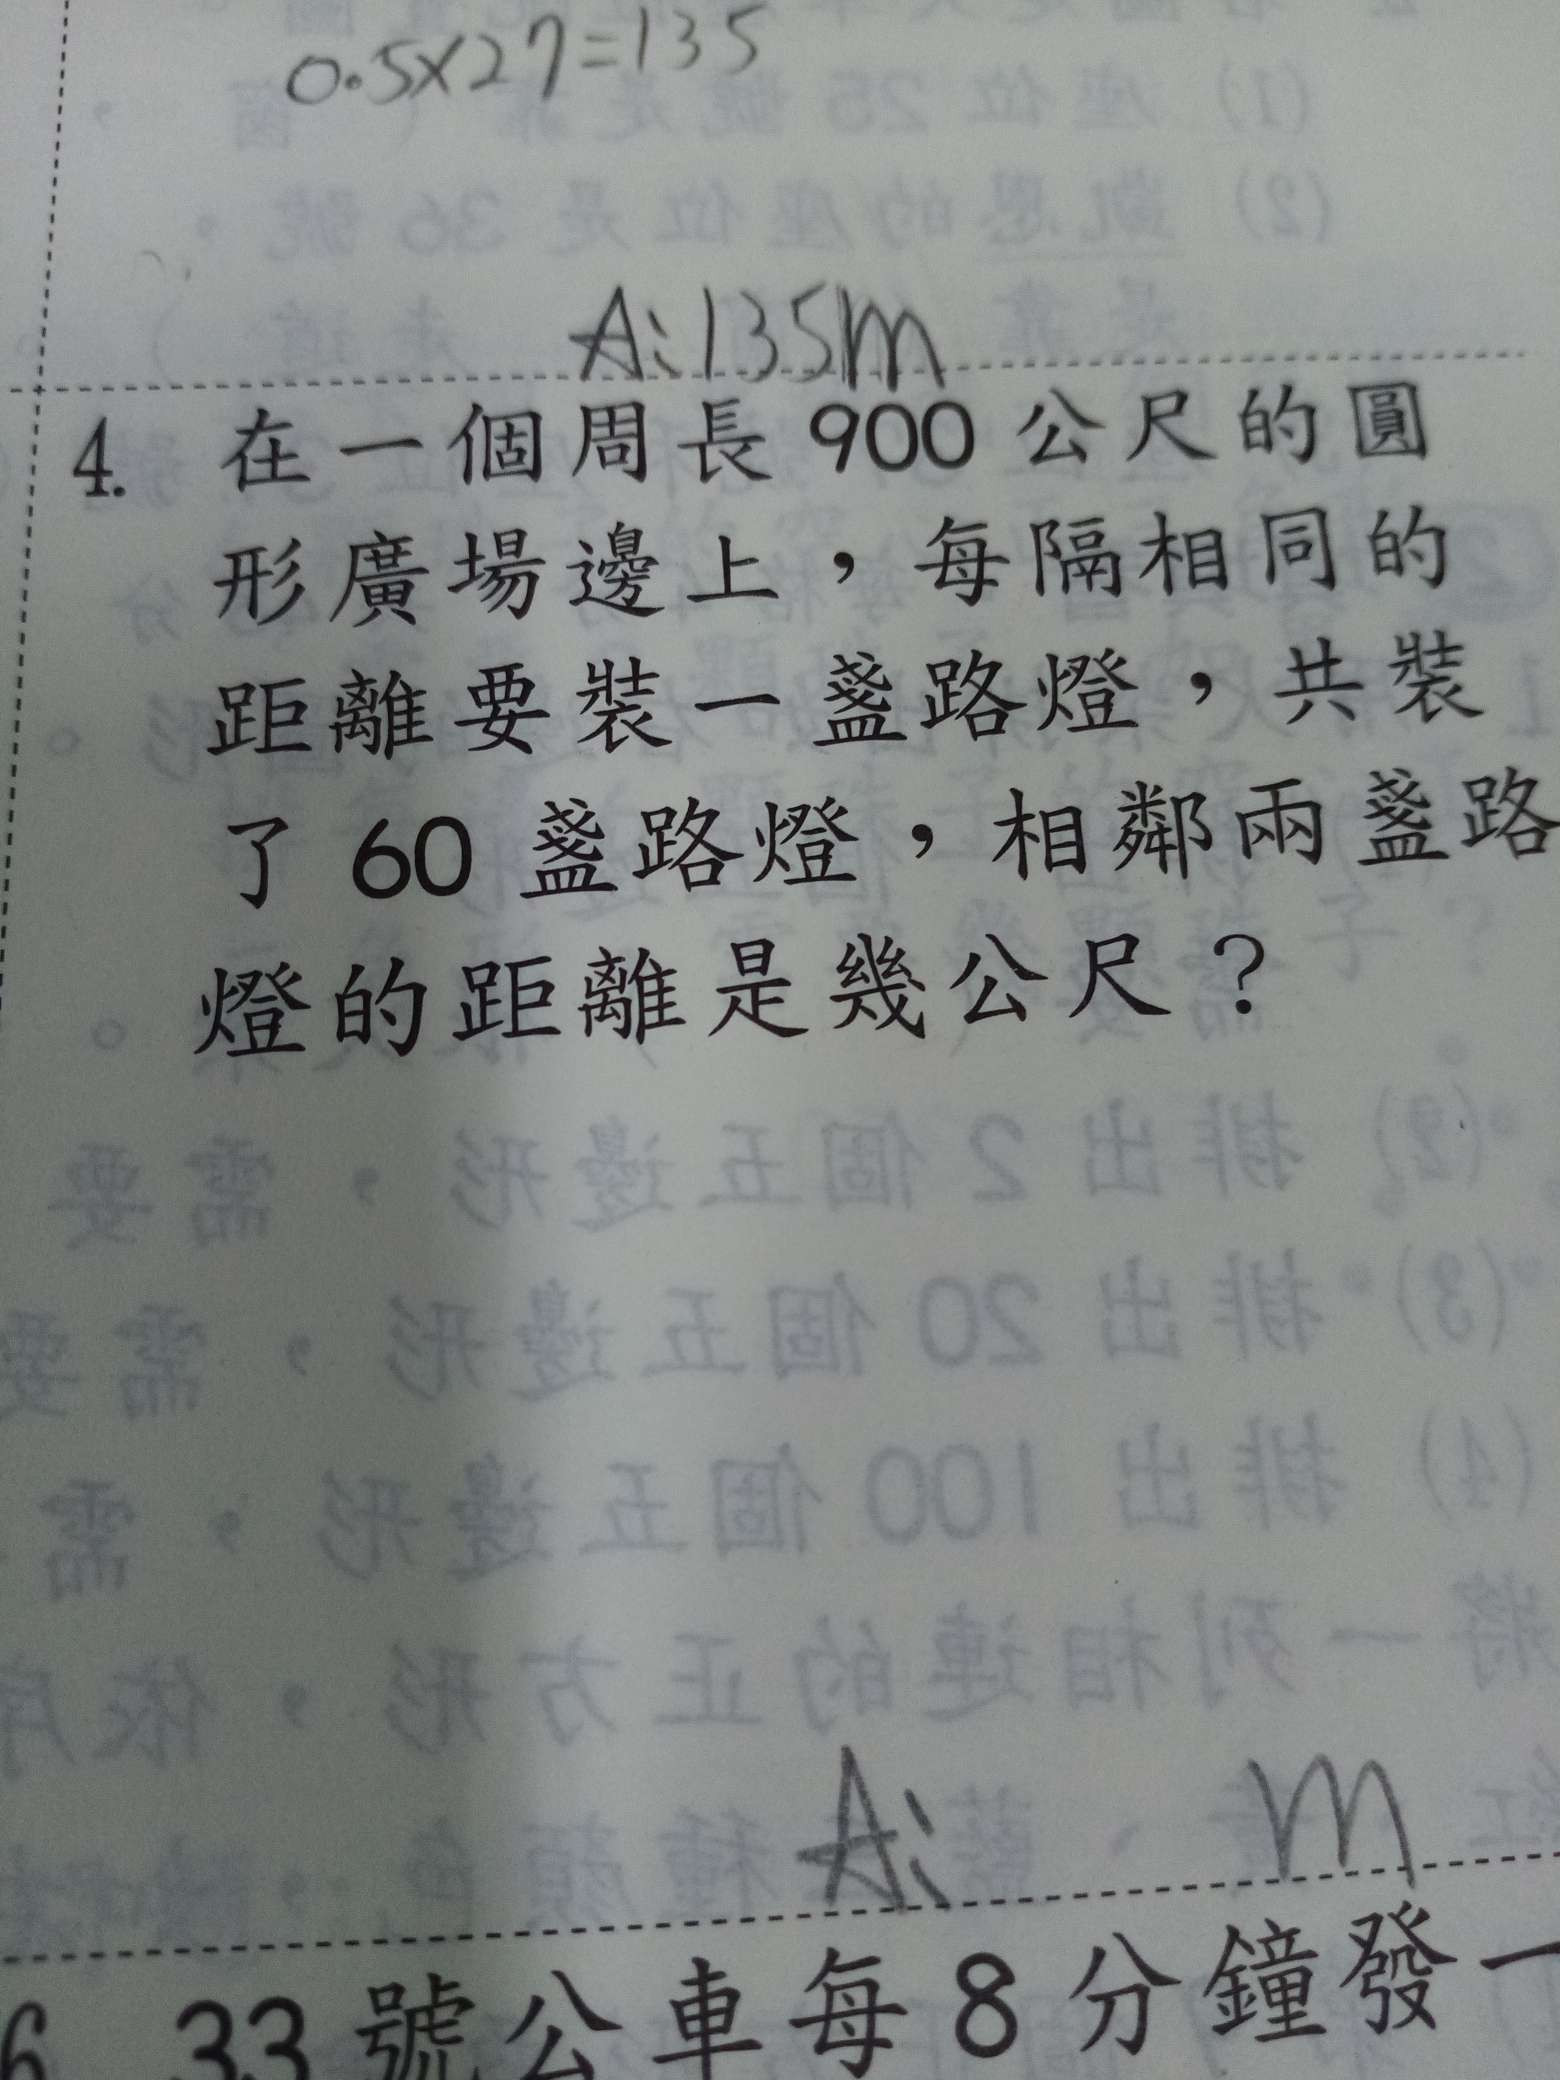 0.5×27=135
A:135m
4. 在一個周長 900 公尺的圓
形廣場邊上，每隔相同的
距離要裝一盞路燈，共裝
了 60 盞路燈，相鄰兩盞路
燈的距離是幾公尺？
A: m
6 33號公車每8分鐘發一